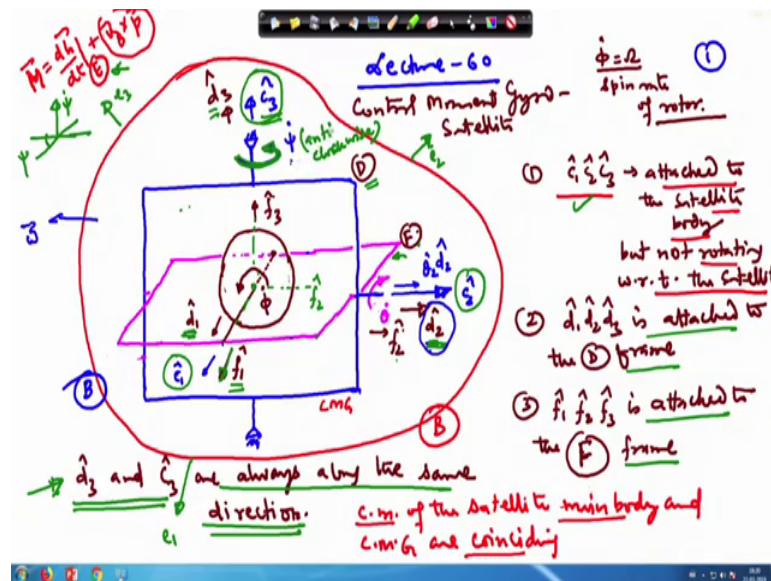 Lecture-60
Control Moment Gyro-
Satellite
φ̇ = Ω
spin rate
of rotor.
①
M⃗ = dh⃗/dt
E
ψ̇
ψ
e3
e2
e1
d̂3
ĉ3
ψ̇ (anti
clockwise)
D
F
f̂3
f̂2
φ̇
d̂1
ĉ1
f̂1
θ̇
d̂2
ĉ2
f̂2
d̂2
CMG
B
B
① ĉ1 ĉ2 ĉ3 → attached to
the satellite
body
but not rotating
w.r.t. the satellite
② d̂1 d̂2 d̂3 is attached to
the D frame
③ f̂1 f̂2 f̂3 is attached to
the F frame
→ d̂3 and ĉ3 are always along the same
direction.
c.m. of the satellite main body and
C.M.G are coinciding